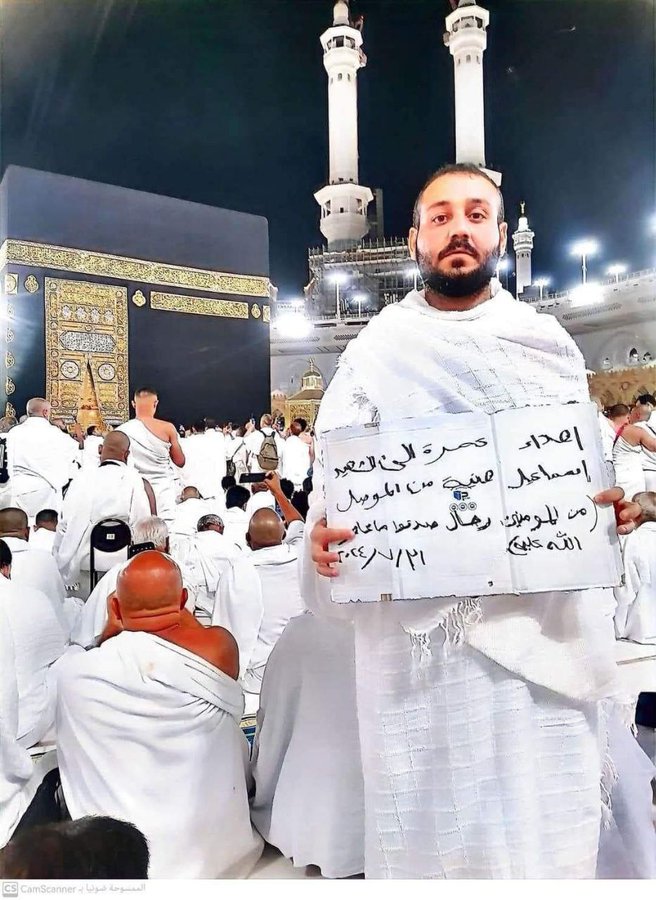 اهداء عمرة الى الشهيد
إسماعيل هنية من الموصل
(من المؤمنين رجال صدقوا ما عاهدوا
الله عليه) ٢٠٢٤/٧/٣١
الممسوحة ضوئيا بـ CamScanner CS